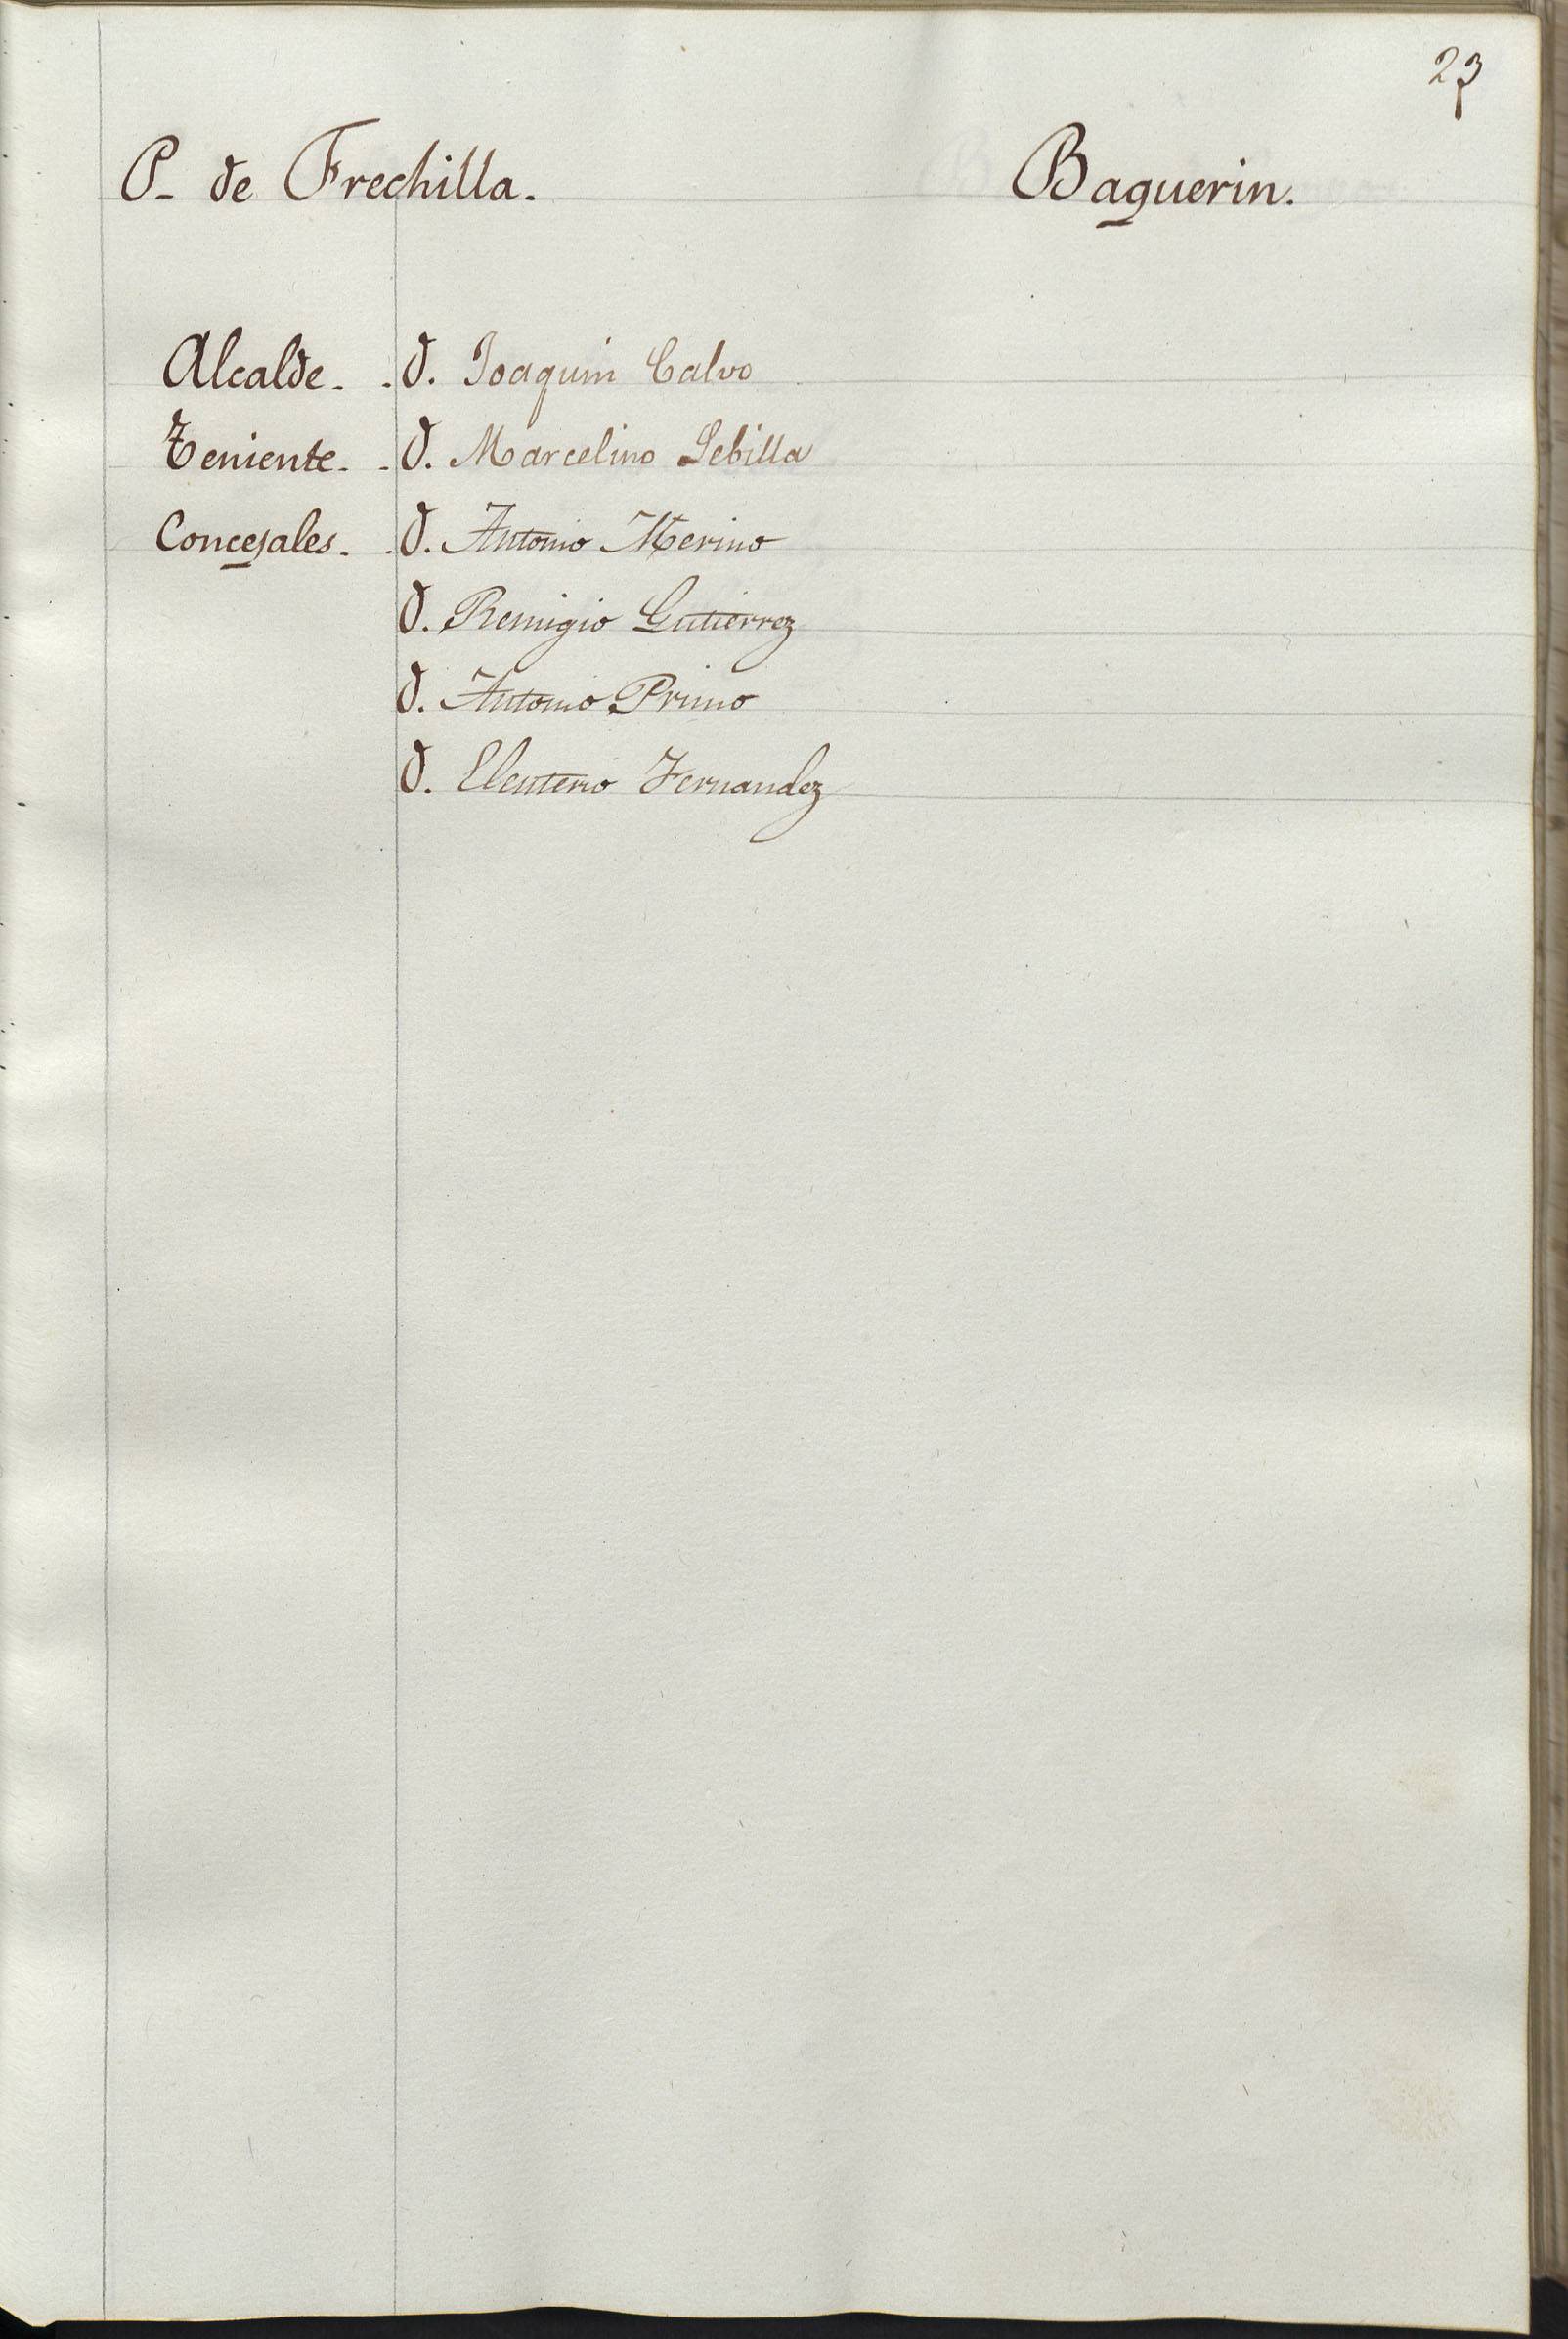 23
P. de Frechilla. Baguerin.
Alcalde. . D. Joaquin Calvo
Teniente. . D. Marcelino Sebilla
Concejales. . D. Antonio Merino
D. Remigio Gutierrez
D. Antonio Primo
D. Eleuterio Fernandez